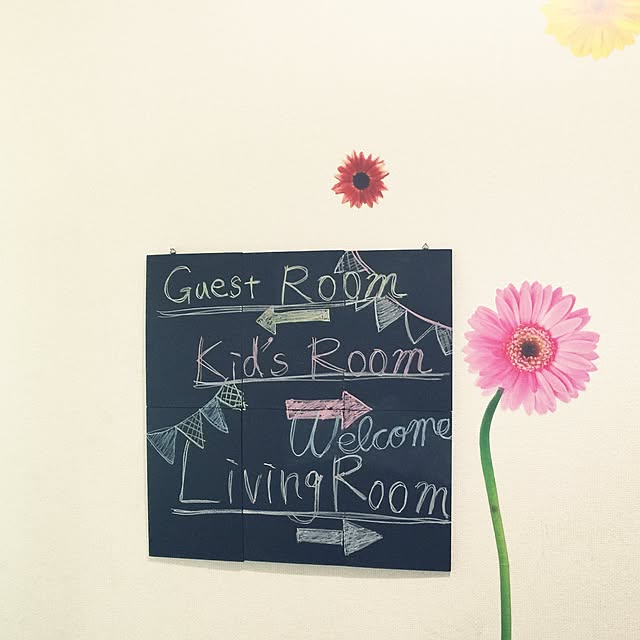 Guest Room
Kid's Room
Welcome
Living Room